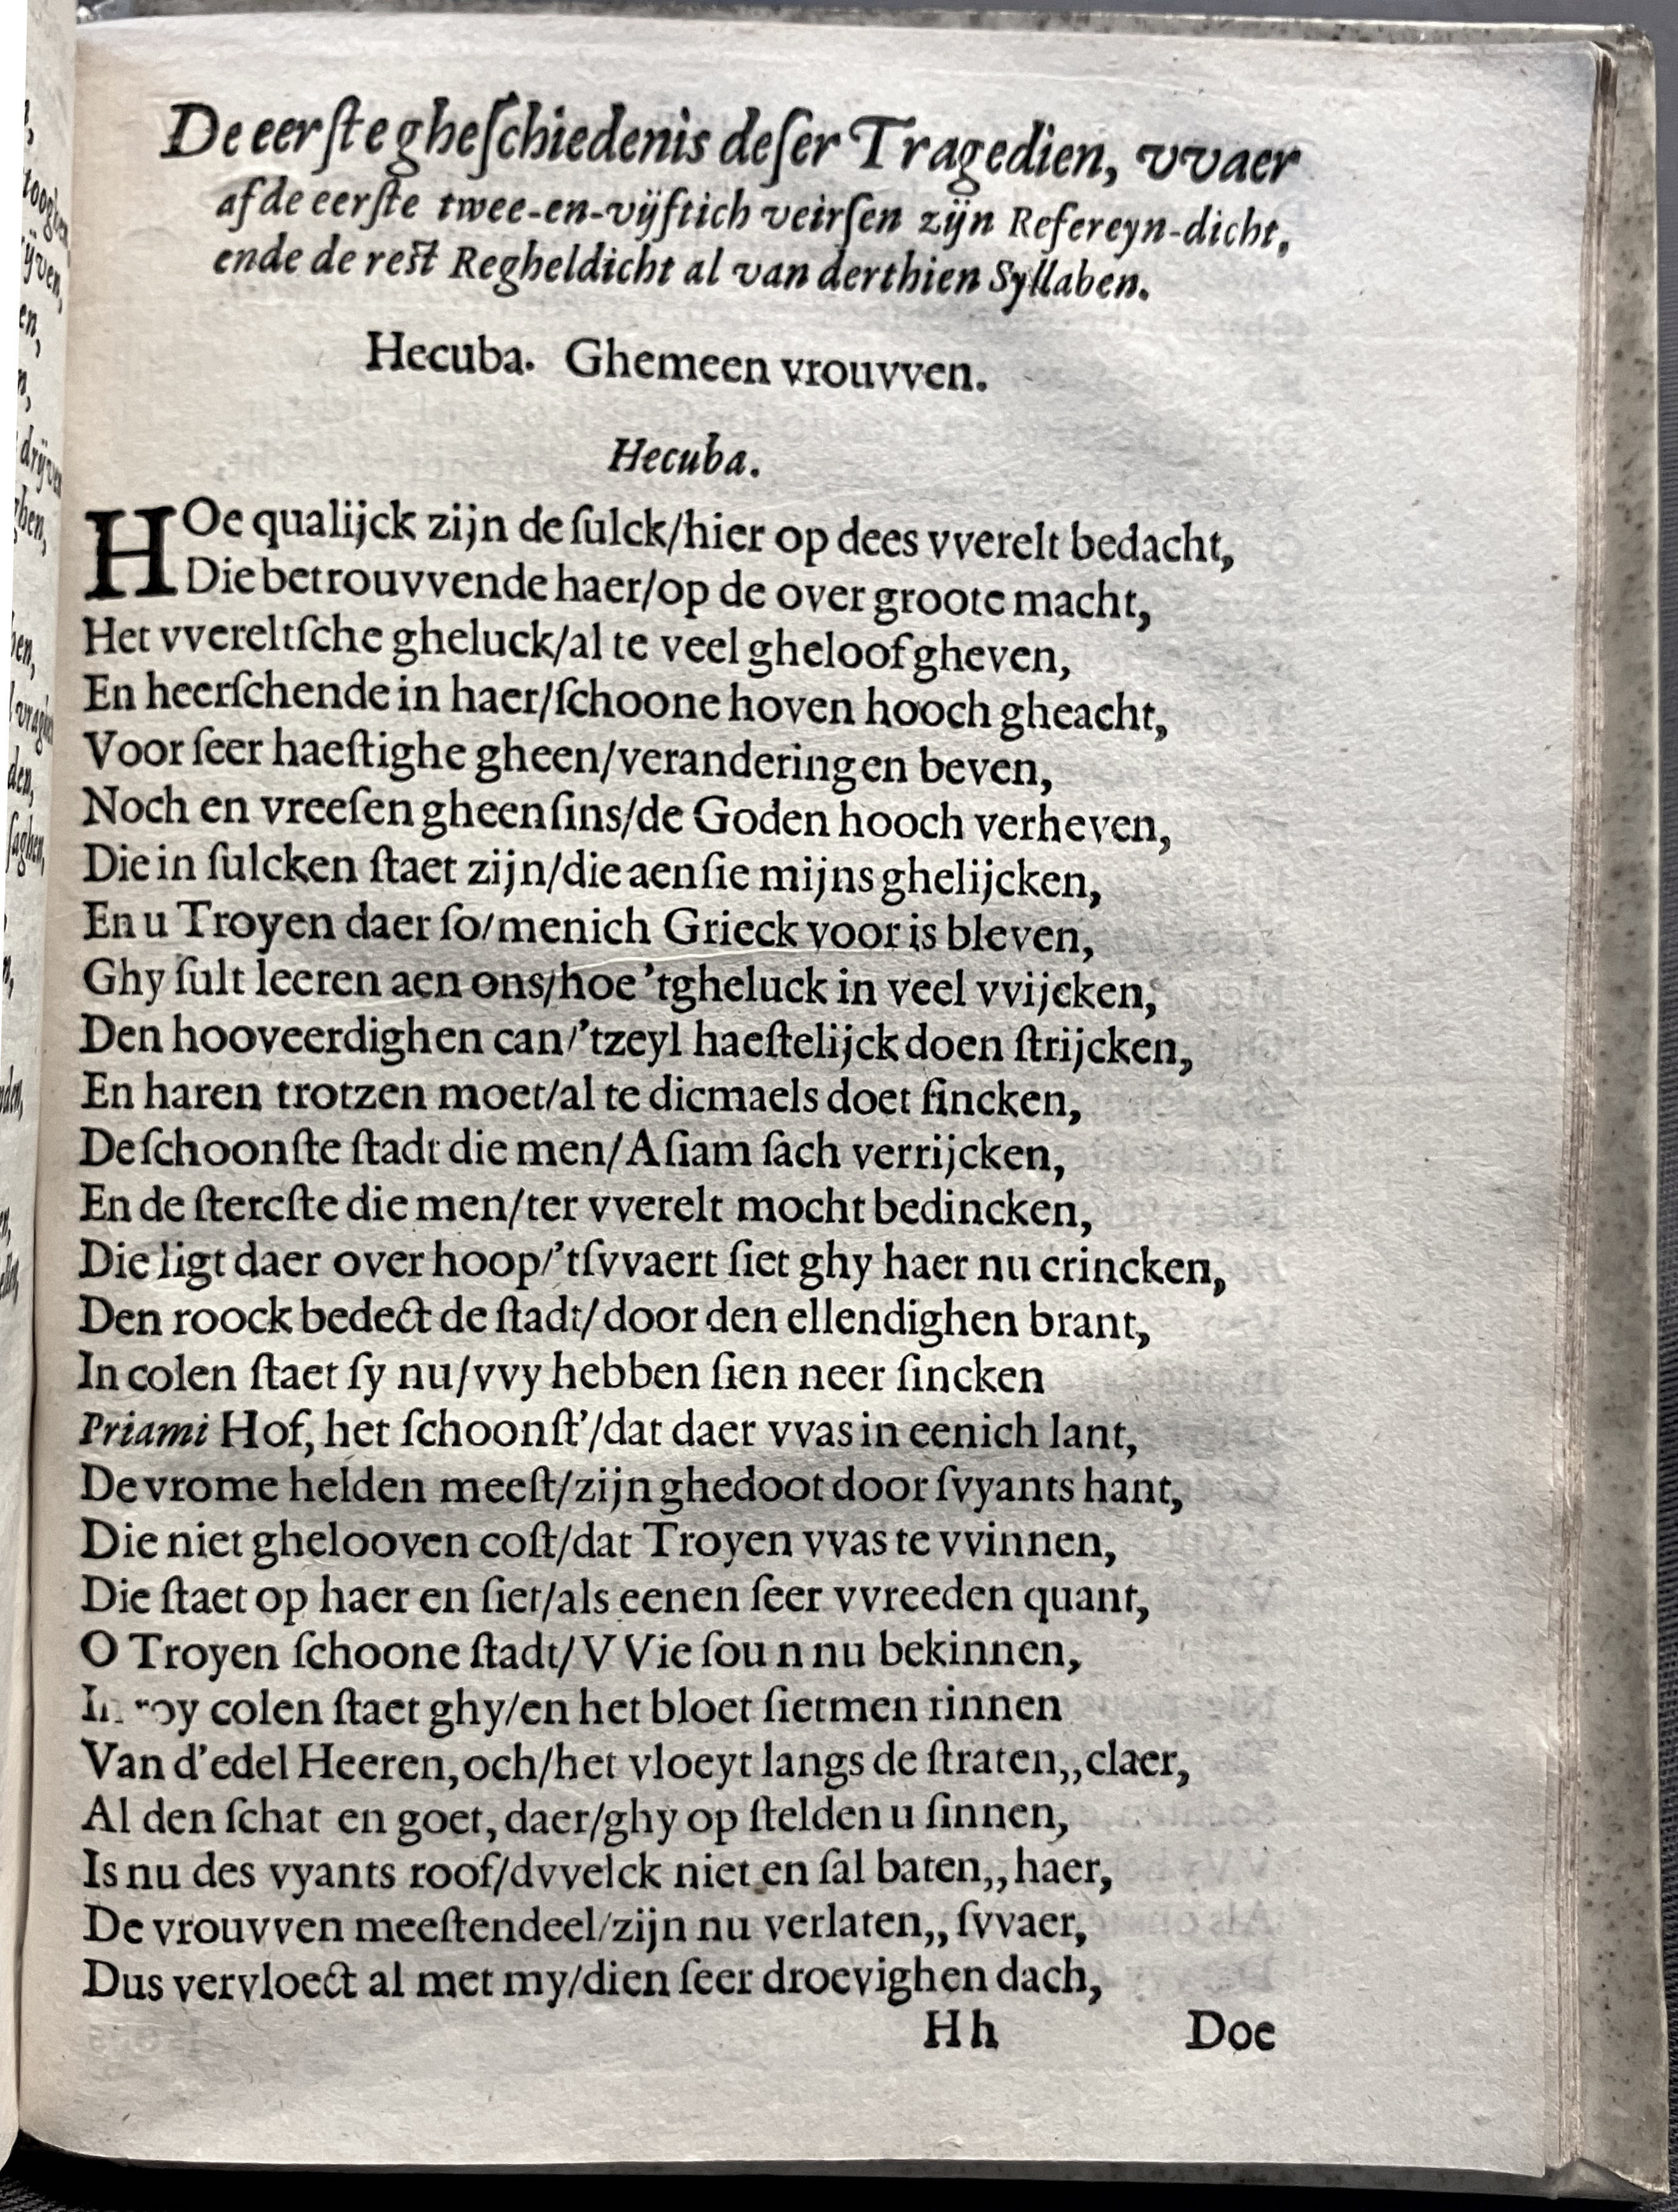 De eerſte gheſchiedenis deſer Tragedien, vvaer
af de eerſte twee-en-vijftich veirſen zijn Refereyn-dicht,
ende de reſt Regheldicht al van derthien Syllaben.
Hecuba. Ghemeen vrouvven.
Hecuba.
HOe qualijck zijn de ſulck/hier op dees vverelt bedacht,
Die betrouvvende haer/op de over groote macht,
Het vvereltſche gheluck/al te veel gheloof gheven,
En heerſchende in haer/ſchoone hoven hooch gheacht,
Voor ſeer haeſtighe gheen/veranderingen beven,
Noch en vreeſen gheenſins/de Goden hooch verheven,
Die in ſulcken ſtaet zijn/die aenſie mijns ghelijcken,
En u Troyen daer ſo/menich Grieck voor is bleven,
Ghy ſult leeren aen ons/hoe 'tgheluck in veel vvijcken,
Den hooveerdighen can/'tzeyl haeſtelijck doen ſtrijcken,
En haren trotzen moet/al te dicmaels doet ſincken,
De ſchoonſte ſtadt die men/Aſiam ſach verrijcken,
En de ſtercſte die men/ter vverelt mocht bedincken,
Die ligt daer over hoop/'tſvvaert ſiet ghy haer nu crincken,
Den roock bedect de ſtadt/door den ellendighen brant,
In colen ſtaet ſy nu/vvy hebben ſien neer ſincken
Priami Hof, het ſchoonſt'/dat daer vvas in eenich lant,
De vrome helden meeſt/zijn ghedoot door ſvyants hant,
Die niet ghelooven coſt/dat Troyen vvas te vvinnen,
Die ſtaet op haer en ſiet/als eenen ſeer vvreeden quant,
O Troyen ſchoone ſtadt/VVie ſou n nu bekinnen,
colen ſtaet ghy/en het bloet ſietmen rinnen
Van d'edel Heeren, och/het vloeyt langs de ſtraten,, claer,
Al den ſchat en goet, daer/ghy op ſtelden u ſinnen,
Is nu des vyants roof/dvvelck niet en ſal baten,, haer,
De vrouvven meeſtendeel/zijn nu verlaten,, ſvvaer,
Dus vervloect al met my/dien ſeer droevighen dach,
Hh Doe